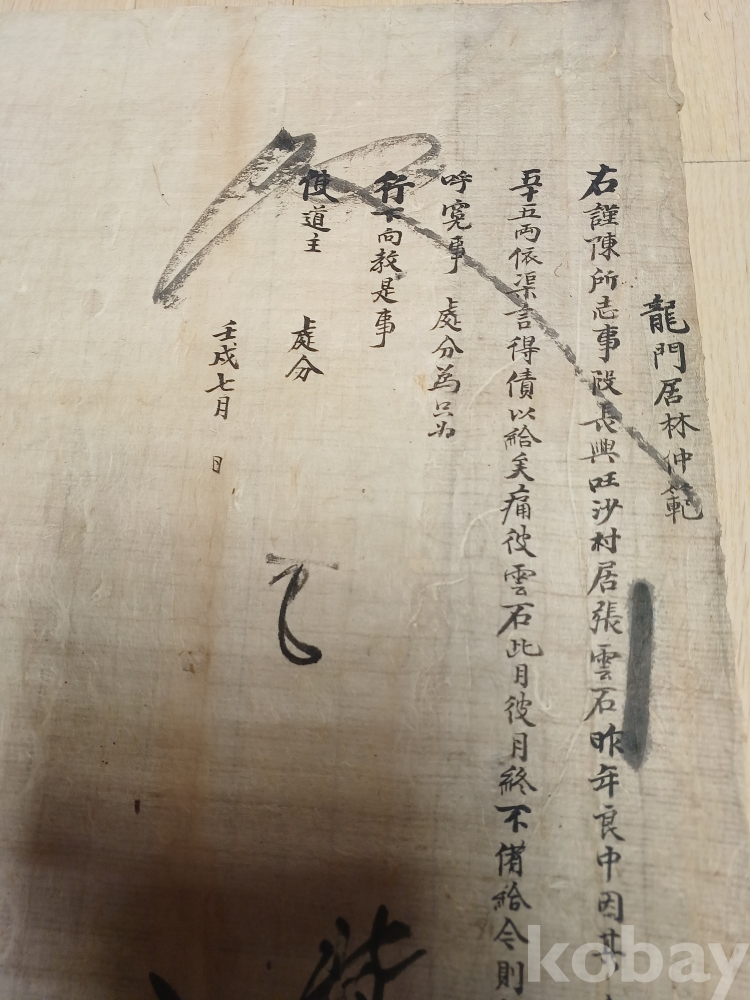 龍門居林仲範
右謹陳所志事段長興旺沙村居張雲石昨年良中因其
五十五兩依渠言得債以給矣痛彼雲石此月彼月終不備給今則
呼寃事 處分爲只爲
行下向敎是事
使道主 處分
壬戌七月 日
kobay